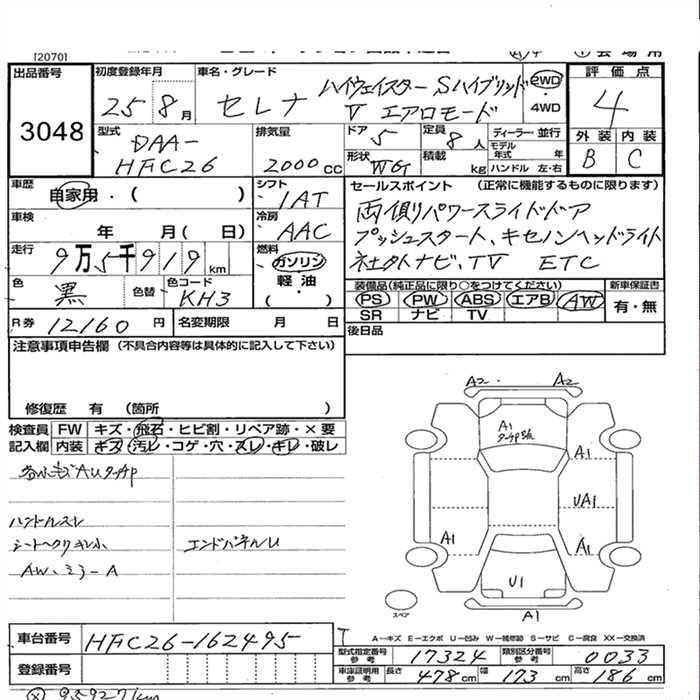 [2070]
出品番号 初度登録年月 車名・グレード 評価点
3048 25 8月 セレナ ハイウェイスター Sハイブリッド 2WD 4
V エアロモード 4WD
型式 排気量 ドア 定員 ディーラー・並行 外装 内装
DAA-
HFC26 2000cc 5 8人 モデル年式 年 B C
形状 WG 積載 kg ハンドル 左・右
車歴 自家用・( ) シフト IAT セールスポイント (正常に機能するものに限ります)
車検 年 月( 日) 冷房 AAC 両側パワースライドドア
走行 9万5千919km 燃料 ガソリン プッシュスタート、キセノンヘッドライト
軽油 社外ナビ、TV ETC
色 黒 色替 色コード KH3 ( )
装備品(純正品に限り○をつけてください) 新車保証書
PS PW ABS エアB AW 有・無
SR ナビ TV
R券 12160円 名変期限 月 日 後日品
注意事項申告欄 (不具合内容等は具体的に記入して下さい)
修復歴 有 (箇所 )
検査員 FW キズ・飛石・ヒビ割・リペア跡・×要
記入欄 内装 キズ・汚レ・コゲ・穴・スレ・キレ・破レ
ハンドルスレ
エンドパネルU
AW、ミラーA
A2 A2
A1
A1
UA1
A1 A1
U1
スペア
A1
A-キズ E-エクボ U-凹み W-補修跡 S-サビ C-腐食 XX-交換済
車台番号 HFC26-162495
型式指定番号 参考 17324 類別区分番号 参考 0033
登録番号
車庫証明用 参考 長さ 478cm 幅 173cm 高さ 186cm
95927km